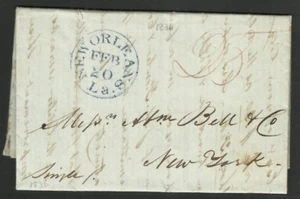 1836
25
NEW ORLEANS
FEB
20
La.
Messrs Abm Bell & Co
New York.
Single